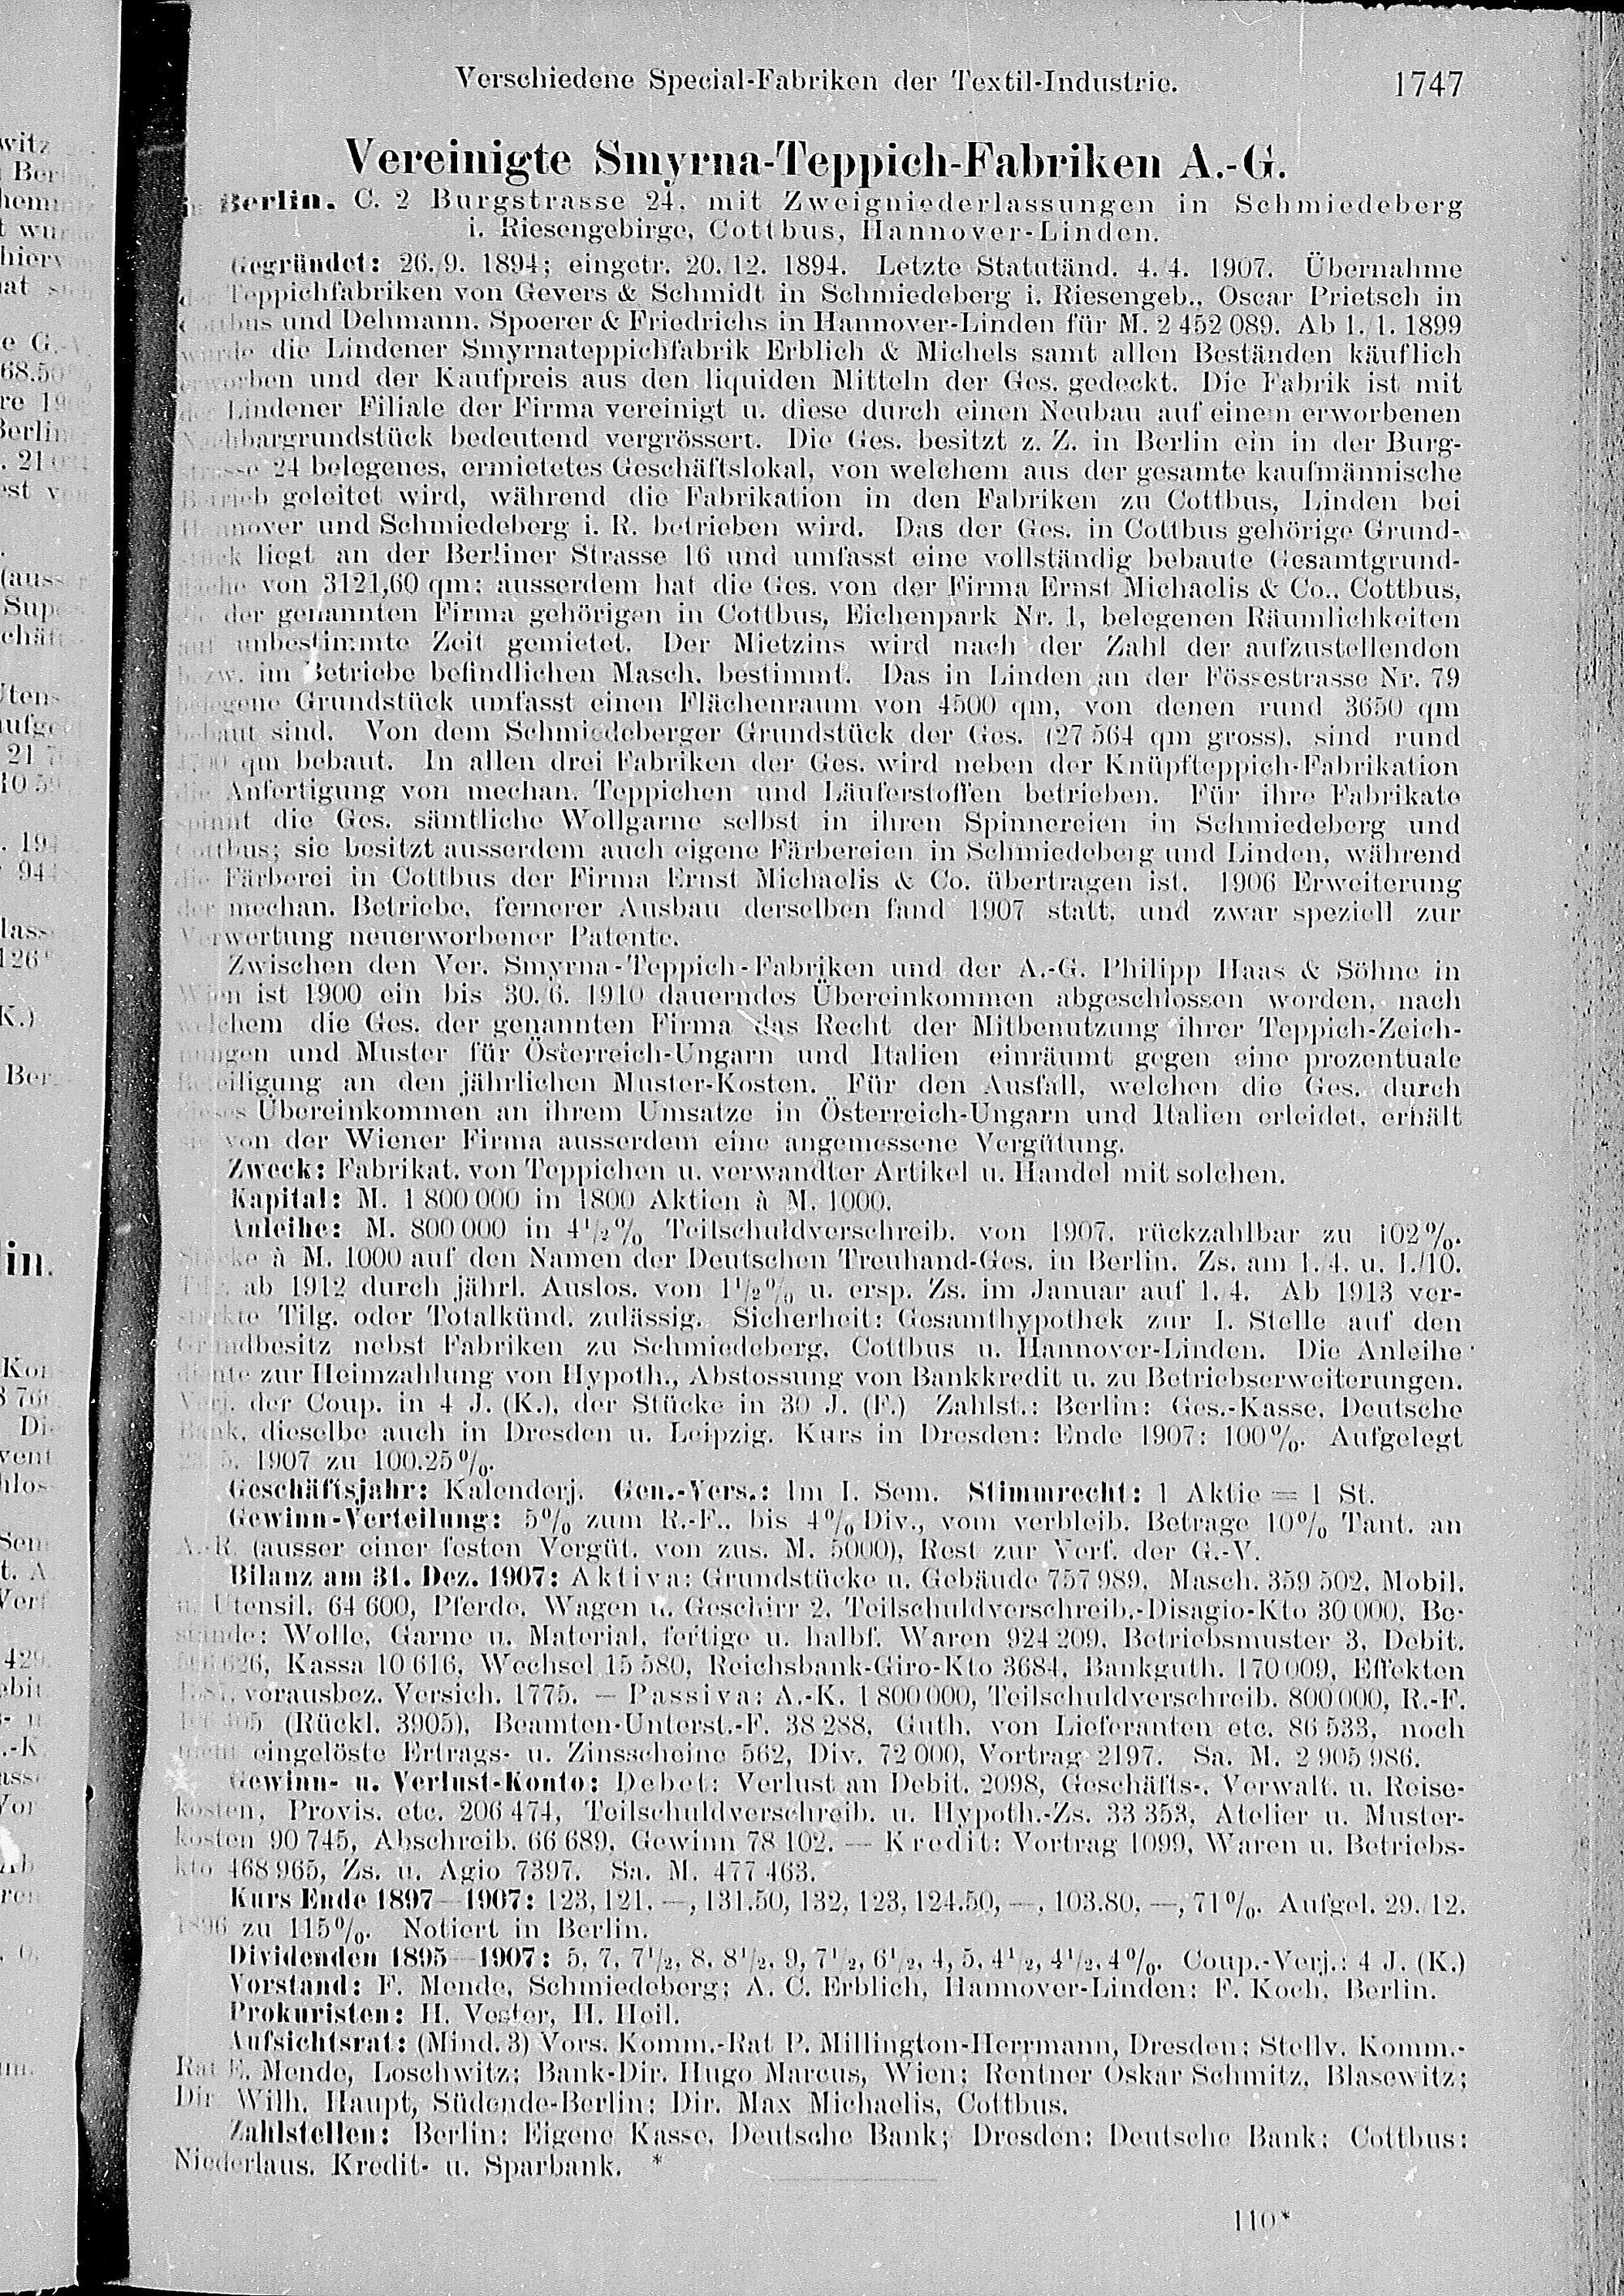 Verschiedene Special-Fabriken der Textil-Industrie. 1747
Vereinigte Smyrna-Teppich-Fabriken A.-G.
in Berlin, C. 2 Burgstrasse 24, mit Zweigniederlassungen in Schmiedeberg
i. Riesengebirge, Cottbus, Hannover-Linden.
Gegründet: 26./9. 1894; eingetr. 20./12. 1894. Letzte Statutänd. 4./4. 1907. Übernahme
der Teppichfabriken von Gevers & Schmidt in Schmiedeberg i. Riesengeb., Oscar Prietsch in
Cottbus und Dehmann, Spoerer & Friedrichs in Hannover-Linden für M. 2 452 089. Ab 1./1. 1899
wurde die Lindener Smyrnateppichfabrik Erblich & Michels samt allen Beständen käuflich
erworben und der Kaufpreis aus den liquiden Mitteln der Ges. gedeckt. Die Fabrik ist mit
der Lindener Filiale der Firma vereinigt u. diese durch einen Neubau auf einem erworbenen
Nachbargrundstück bedeutend vergrössert. Die Ges. besitzt z. Z. in Berlin ein in der Burg-
strasse 24 belegenes, ermietetes Geschäftslokal, von welchem aus der gesamte kaufmännische
Betrieb geleitet wird, während die Fabrikation in den Fabriken zu Cottbus, Linden bei
Hannover und Schmiedeberg i. R. betrieben wird. Das der Ges. in Cottbus gehörige Grund-
stück liegt an der Berliner Strasse 16 und umfasst eine vollständig bebaute Gesamtgrund-
fläche von 3121,60 qm; ausserdem hat die Ges. von der Firma Ernst Michaelis & Co., Cottbus,
die der genannten Firma gehörigen in Cottbus, Eichenpark Nr. 1, belegenen Räumlichkeiten
auf unbestimmte Zeit gemietet. Der Mietzins wird nach der Zahl der aufzustellenden
bezw. im Betriebe befindlichen Masch. bestimmt. Das in Linden an der Fössestrasse Nr. 79
belegene Grundstück umfasst einen Flächenraum von 4500 qm, von denen rund 3650 qm
bebaut sind. Von dem Schmiedeberger Grundstück der Ges. (27 564 qm gross), sind rund
4700 qm bebaut. In allen drei Fabriken der Ges. wird neben der Knüpfteppich-Fabrikation
die Anfertigung von mechan. Teppichen und Läuferstoffen betrieben. Für ihre Fabrikate
spinnt die Ges. sämtliche Wollgarne selbst in ihren Spinnereien in Schmiedeberg und
Cottbus; sie besitzt ausserdem auch eigene Färbereien in Schmiedeberg und Linden, während
die Färberei in Cottbus der Firma Ernst Michaelis & Co. übertragen ist. 1906 Erweiterung
der mechan. Betriebe, fernerer Ausbau derselben fand 1907 statt, und zwar speziell zur
Verwertung neuerworbener Patente.
Zwischen den Ver. Smyrna-Teppich-Fabriken und der A.-G. Philipp Haas & Söhne in
Wien ist 1900 ein bis 30./6. 1910 dauerndes Übereinkommen abgeschlossen worden, nach
welchem die Ges. der genannten Firma das Recht der Mitbenutzung ihrer Teppich-Zeich-
nungen und Muster für Österreich-Ungarn und Italien einräumt gegen eine prozentuale
Beteiligung an den jährlichen Muster-Kosten. Für den Ausfall, welchen die Ges. durch
dieses Übereinkommen an ihrem Umsatze in Österreich-Ungarn und Italien erleidet, erhält
sie von der Wiener Firma ausserdem eine angemessene Vergütung.
Zweck: Fabrikat. von Teppichen u. verwandter Artikel u. Handel mit solchen.
Kapital: M. 1 800 000 in 1800 Aktien à M. 1000.
Anleihe: M. 800 000 in 4 1/2 % Teilschuldverschreib. von 1907, rückzahlbar zu 102 %.
Stücke à M. 1000 auf den Namen der Deutschen Treuhand-Ges. in Berlin. Zs. am 1./4. u. 1./10.
Tilg. ab 1912 durch jährl. Auslos. von 1 1/2 % u. ersp. Zs. im Januar auf 1./4. Ab 1913 ver-
stärkte Tilg. oder Totalkünd. zulässig. Sicherheit: Gesamthypothek zur I. Stelle auf den
Grundbesitz nebst Fabriken zu Schmiedeberg, Cottbus u. Hannover-Linden. Die Anleihe
diente zur Heimzahlung von Hypoth., Abstossung von Bankkredit u. zu Betriebserweiterungen.
Verj. der Coup. in 4 J. (K.), der Stücke in 30 J. (F.) Zahlst.: Berlin: Ges.-Kasse, Deutsche
Bank, dieselbe auch in Dresden u. Leipzig. Kurs in Dresden: Ende 1907: 100 %. Aufgelegt
5. 1907 zu 100.25 %.
Geschäftsjahr: Kalenderj. Gen.-Vers.: Im I. Sem. Stimmrecht: 1 Aktie = 1 St.
Gewinn-Verteilung: 5 % zum R.-F., bis 4 % Div., vom verbleib. Betrage 10 % Tant. an
A.-R. (ausser einer festen Vergüt. von zus. M. 5000), Rest zur Verf. der G.-V.
Bilanz am 31. Dez. 1907: Aktiva: Grundstücke u. Gebäude 757 989, Masch. 359 502, Mobil.
u. Utensil. 64 600, Pferde, Wagen u. Geschirr 2, Teilschuldverschreib.-Disagio-Kto 30 000, Be-
stände: Wolle, Garne u. Material, fertige u. halbf. Waren 924 209, Betriebsmuster 3, Debit.
626, Kassa 10 616, Wechsel 15 580, Reichsbank-Giro-Kto 3684, Bankguth. 170 009, Effekten
vorausbez. Versich. 1775. — Passiva: A.-K. 1 800 000, Teilschuldverschreib. 800 000, R.-F.
106 405 (Rückl. 3905), Beamten-Unterst.-F. 38 288, Guth. von Lieferanten etc. 86 533, noch
nicht eingelöste Ertrags- u. Zinsscheine 562, Div. 72 000, Vortrag 2197. Sa. M. 2 905 986.
Gewinn- u. Verlust-Konto: Debet: Verlust an Debit. 2098, Geschäfts-, Verwalt. u. Reise-
kosten, Provis. etc. 206 474, Teilschuldverschreib. u. Hypoth.-Zs. 33 353, Atelier u. Muster-
kosten 90 745, Abschreib. 66 689, Gewinn 78 102. — Kredit: Vortrag 1099, Waren u. Betriebs-
kto 468 965, Zs. u. Agio 7397. Sa. M. 477 463.
Kurs Ende 1897—1907: 123, 121, —, 131.50, 132, 123, 124.50, —, 103.80, —, 71 %. Aufgel. 29./12.
1896 zu 115 %. Notiert in Berlin.
Dividenden 1895—1907: 5, 7, 7 1/2, 8, 8 1/2, 9, 7 1/2, 6 1/2, 4, 5, 4 1/2, 4 1/2, 4 %. Coup.-Verj.: 4 J. (K.)
Vorstand: F. Mende, Schmiedeberg; A. C. Erblich, Hannover-Linden; F. Koch, Berlin.
Prokuristen: H. Vester, H. Heil.
Aufsichtsrat: (Mind. 3) Vors. Komm.-Rat P. Millington-Herrmann, Dresden; Stellv. Komm.-
Rat E. Mende, Loschwitz; Bank-Dir. Hugo Marcus, Wien; Rentner Oskar Schmitz, Blasewitz;
Dir. Wilh. Haupt, Südende-Berlin; Dir. Max Michaelis, Cottbus.
Zahlstellen: Berlin: Eigene Kasse, Deutsche Bank; Dresden: Deutsche Bank; Cottbus:
Niederlaus. Kredit- u. Sparbank. *
110*